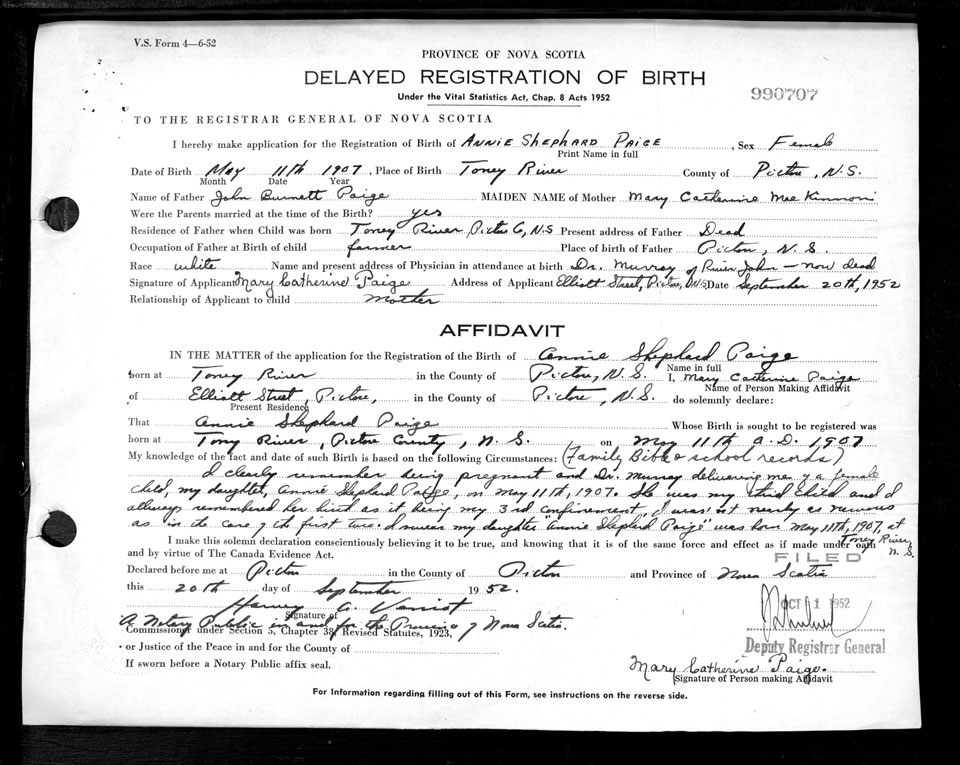 V.S. Form 4—6-52
PROVINCE OF NOVA SCOTIA
DELAYED REGISTRATION OF BIRTH
Under the Vital Statistics Act, Chap. 8 Acts 1952
990707
TO THE REGISTRAR GENERAL OF NOVA SCOTIA
I hereby make application for the Registration of Birth of ANNIE SHEPHARD PAIGE, Sex Female
Print Name in full
Date of Birth May 11th 1907, Place of Birth Toney River County of Pictou, N.S.
Month Date Year
Name of Father John Burnett Paige MAIDEN NAME of Mother Mary Catherine MacKinnon
Were the Parents married at the time of the Birth? yes
Residence of Father when Child was born Toney River, Pictou Co, N.S Present address of Father Dead
Occupation of Father at Birth of child farmer Place of birth of Father Pictou, N.S.
Race white Name and present address of Physician in attendance at birth Dr. Murray of River John — now dead
Signature of Applicant Mary Catherine Paige Address of Applicant Elliott Street, Pictou, N.S Date September 20th, 1952
Relationship of Applicant to child Mother
AFFIDAVIT
IN THE MATTER of the application for the Registration of the Birth of Annie Shephard Paige
Name in full
born at Toney River in the County of Pictou, N.S. I, Mary Catherine Paige
Name of Person Making Affidavit
of Elliott Street, Pictou, in the County of Pictou, N.S. do solemnly declare:
Present Residence
That Annie Shephard Paige Whose Birth is sought to be registered was
born at Tony River, Pictou County, N.S. on May 11th A.D. 1907
My knowledge of the fact and date of such Birth is based on the following Circumstances: (Family Bible & school records)
I clearly remember being pregnant and Dr. Murray delivering me of a female
child, my daughter, Annie Shephard Paige, on May 11th, 1907. She was my third child and I
always remembered her birth as it being my 3rd confinement, I wasn't nearly as nervous
as in the case of the first two. I swear my daughter "Annie Shephard Paige" was born May 11th, 1907, at
Toney River,
N.S.
I make this solemn declaration conscientiously believing it to be true, and knowing that it is of the same force and effect as if made under oath
and by virtue of The Canada Evidence Act.
FILED
Declared before me at Pictou in the County of Pictou and Province of Nova Scotia
this 20th day of September 1952.
OCT 1 1952
Harvey A. Veniot
Signature of
A Notary Public in and for the Province of Nova Scotia.
Commissioner under Section 5, Chapter 38, Revised Statutes, 1923,
Deputy Registrar General
- or Justice of the Peace in and for the County of
If sworn before a Notary Public affix seal.
Mary Catherine Paige.
Signature of Person making Affidavit
For Information regarding filling out of this Form, see instructions on the reverse side.